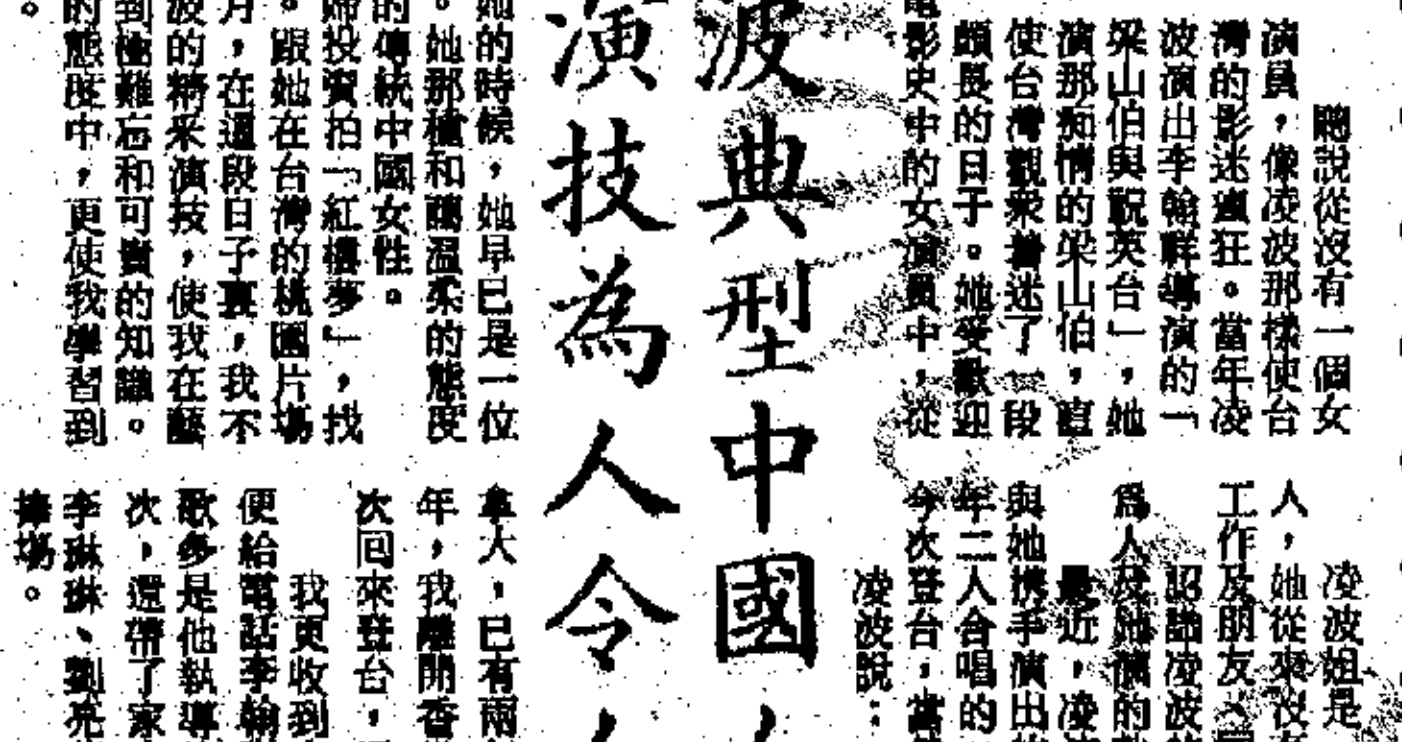 聽說從沒有一個女
演員，像凌波那樣使台
灣的影迷瘋狂。當年凌
波演出李翰祥導演的「
梁山伯與祝英台」，她
演那痴情的梁山伯，直
使台灣觀衆着迷了一段
頗長的日子。她受歡迎
影史中的女演員中，從
凌波姐是
人，她從來沒
工作及朋友
認識凌波
爲人及她演的
最近，凌
與她携手演出
年二人合唱的
今次登台，當
凌波說：
波典型中國
演技為人令
她的時候，她早已是一位
。她那種和藹溫柔的態度
的傳統中國女性。
投資拍「紅樓夢」，找
。跟她在台灣的桃園片場
月，在這段日子裏，我不
波的精采演技，使我在藝
到極難忘和可貴的知識。
的態度中，更使我學習到
。
拿大，已有兩
年，我離開香
次回來登台，
我更收到
便給電話李翰
歌多是他執導
次，還帶了家
李琳琳、劉亮
捧場。